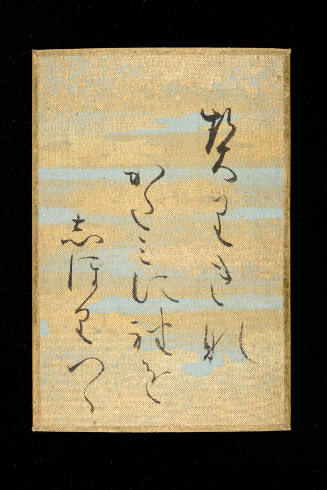 契りきな
かたみに袖を
しほりつゝ